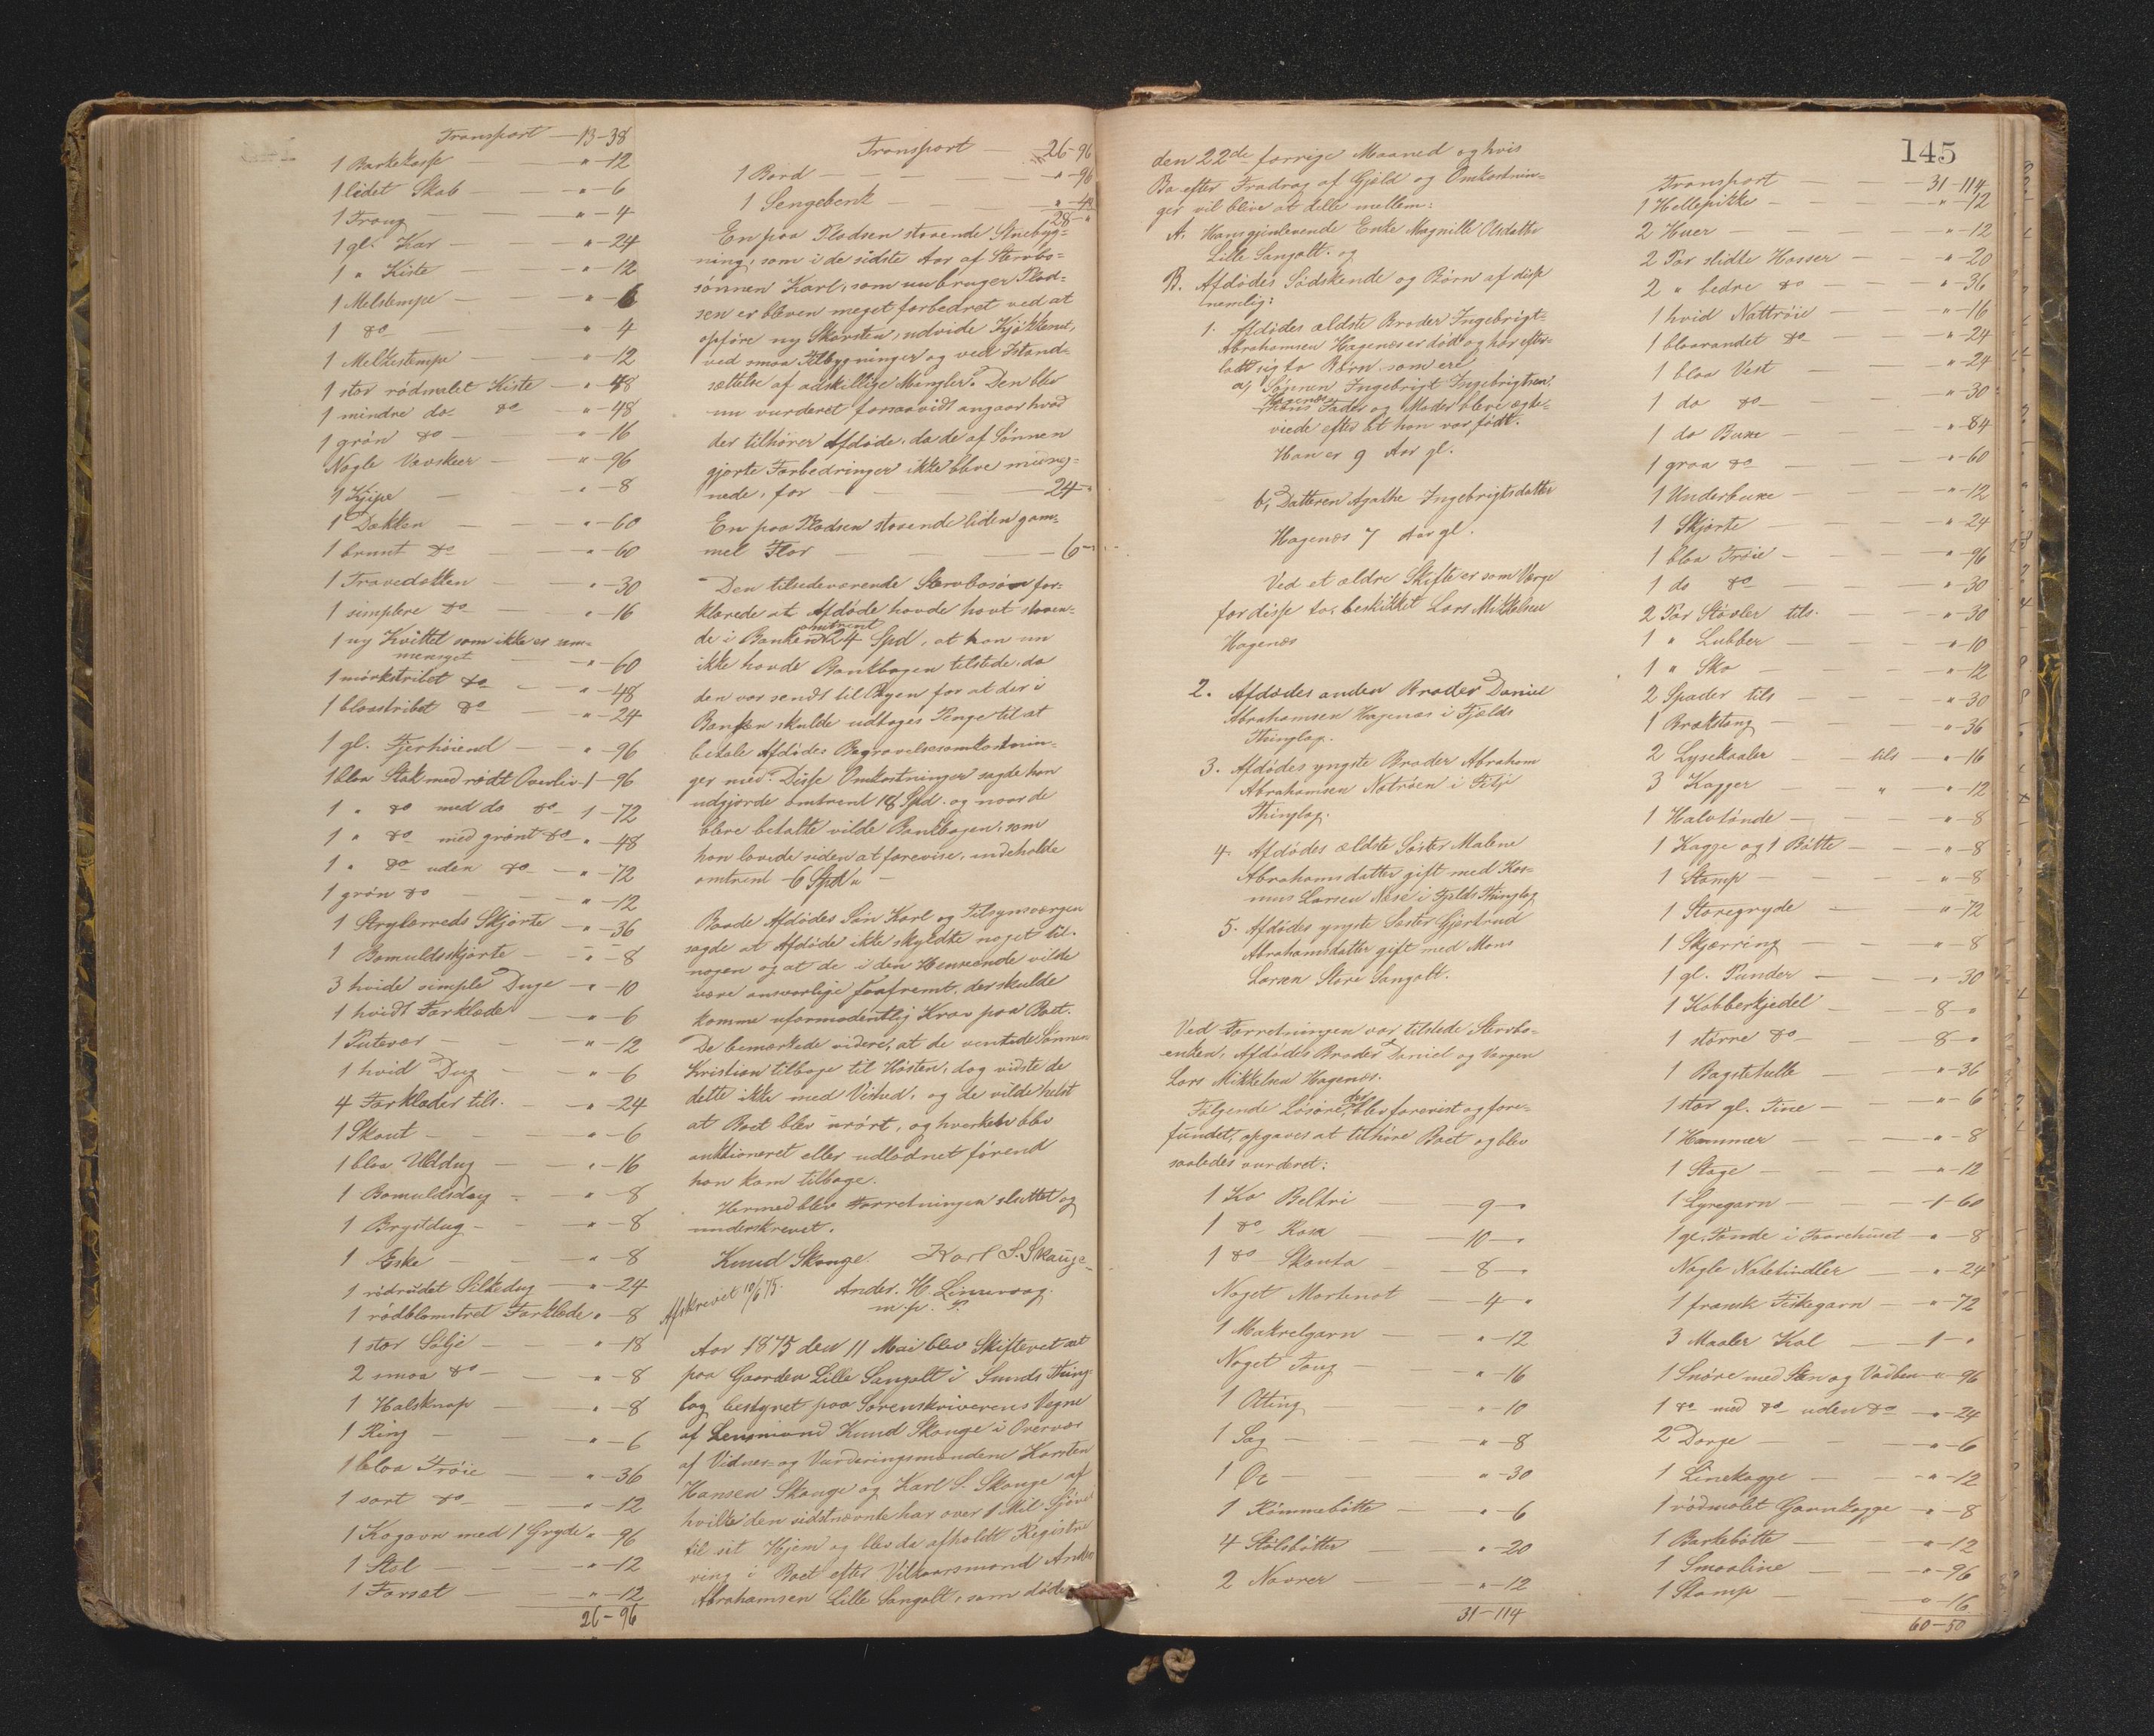 Transport — 13-38
1 Barkekasse — " - 12
1 lidet Skab — " - 6
1 Traug — " - 4
1 gl. Kar — " - 24
1 " Kiste — " - 12
1 Melstampe — " - 6
1 do — " - 4
1 Melkestampe — " - 12
1 stor rødmalet Kiste — " - 48
1 mindre do do — " - 48
1 grøn do — " - 16
Nogle Vævskeer — " - 96
1 Kjipe — " - 8
1 Dækken — " - 60
1 brunt do — " - 60
1 Fravedækken — " - 30
1 simplere do — " - 16
1 ny Kvittel som ikke er sam-
mensyet — " - 60
1 mørkstribet do — " - 48
1 blaastribet do — " - 24
1 gl. Fjerhøiend — " - 96
1 blaa Stak med rødt Overliv - 1 - 96
1 " do med do do - 1 - 72
1 " do med grønt do - " - 48
1 " do uden do — " - 72
1 grøn do — " - 12
1 Strylærreds Skjorte — " - 36
1 Bomuldsskjorte — " - 8
3 hvide simple Duge — " - 10
1 hvidt Forklæde — " - 6
1 Putevar — " - 12
1 hvid Dug — " - 6
4 Forklæder tils. — " - 24
1 Skout — " - 6
1 blaa Ulddug — " - 16
1 Bomuldsdug — " - 8
1 Brystdug — " - 8
1 Æske — " - 8
1 rødrudet Silkedug — " - 24
1 rødblomstret Forklæde " - 8
1 stor Sølje — " - 18
2 smaa do — " - 8
1 Halsknap — " - 8
1 Ring — " - 6
1 blaa Trøie — " - 36
1 sort do — " - 12
1 Kogovn med 1 Gryde " - 96
1 Stol — " - 12
1 Forset — " - 12
26-96
Transport — 26-96
1 Bord — " - 96
1 Sengebenk — " - 48
28 - "
En paa Pladsen staaende Stuebyg-
ning, som i de sidste Aar af Stervbo-
sønnen Karl, som nu bruger Plad-
sen er bleven meget forbedret ved at
opføre ny Skorsten, udvide Kjøkkenet,
ved smaa Tilbygninger og ved Istand-
sættelse af adskillige Mangler. Den blev
nu vurderet forsaavidt angaar hvad
der tilhører Afdøde, da de af Sønnen
gjorte Forbedringer ikke bleve medreg-
nede, for — 24 - "
En paa Pladsen staaende liden gam-
mel Flor — 6 - "
Den tilstedeværende Stervbosøn for-
klarede at Afdøde havde havt staaen-
de i Banken omtrent 24 Spd, at han nu
ikke havde Bankbogen tilstede, da
den var sendt til Byen for at der i
Banken skulde udtages Penge til at
betale Afdødes Begravelsesomkostnin-
ger med. Disse Omkostninger sagde han
udgjorde omtrent 18 Spd. og naar de
bleve betalte vilde Bankbogen, som
han lovede siden at forevise, indeholde
omtrent 6 Spd. " —
Baade Afdødes Søn Karl og Tilsynsværgen
sagde at Afdøde ikke skyldte noget til
nogen og at de i den Henseende vilde
være ansvarlige forsaavidt der skulde
komme uformodentlig Krav paa Boet.
De bemærkede videre, at de ventede Sønnen
Kristian tilbage til Høsten, dog vidste de
dette ikke med Vished, og de vilde helst
at Boet blev urørt, og hverken blev
auktioneret eller udlodnet førend
han kom tilbage.
Hermed blev Forretningen sluttet og
underskrevet.
Knud Skauge. Karl S. Skauge
Afskrevet 10/6 75. Ander. H. Linvaag.
m. p. P.
Aar 1875 den 11 Mai blev Skifteret sat
paa Gaarden Lille Sangolt i Sunds Thing-
lag bestyret paa Sorenskriverens Vegne
af Lensmand Knud Skauge i Overvær
af Vidnes- og Vurderingsmændene Karsten
Hansen Skauge og Karl S. Skauge af
hvilke den sidstnævnte har over 1 Mil Sjøvei
til sit Hjem og blev da afholdt Registre-
ring i Boet efter Vilkaarsmand Anders
Abrahamsen Lille Sangolt, som døde
145
den 22de forrige Maaned og hvis
Bo efter Fradrag af Gjæld og Omkostnin-
ger vil blive at dele mellem:
A. Hans gjenlevende Enke Magnille Olsdatter
Lille Sangolt. og
B. Afdødes Sødskende og Børn af disse
nemlig:
1. Afdødes ældste Broder Ingebrigt
Abrahamsen Hagenæs er død og har efter-
ladt sig to Børn som ere
a, Sønnen Ingebrigt Ingebrigtsen
Hagenæs
hans Fader og Moder bleve ægte-
viede efter at han var født.
Han er 9 Aar gl.
b, Datteren Agathe Ingebrigtsdatter
Hagenæs 7 Aar gl.
Ved et ældre Skifte er som Værge
for disse to, beskikket Lars Mikkelsen
Hagenæs
2. Afdødes anden Broder Daniel
Abrahamsen Hagenæs i Fjelds
Thinglag.
3. Afdødes yngste Broder Abraham
Abrahamsen Natrøen i
Thinglag.
4. Afdødes ældste Søster Malene
Abrahamsdatter gift med Ras-
mus Larsen Næse i Fjelds Thinglag
5. Afdødes yngste Søster Gjertrud
Abrahamsdatter gift med Mons
Larsen Store Sangolt.
Ved Forretningen var tilstede Stervbo-
enken, Afdødes Broder Daniel og Værgen
Lars Mikkelsen Hagenæs.
Følgende Løsøre der blev forevist og fore-
fundet, opgaves at tilhøre Boet og blev
saaledes vurderet:
1 Ko Beltri — 9 - "
1 do Rosa — 10 - "
1 do Skauta — 8 - "
Noget Mortenot — 4 "
1 Makrelgarn — " - 12
Noget Toug — " - 16
1 Otting — " - 10
1 Sag — " - 8
1 Øx — " - 30
1 Rømmebøtte — " - 6
4 Stølsbøtter — " - 20
2 Navrer — " - 12
31-114
Transport — 31-114
1 Hellepikke — " - 12
2 Huer — " - 12
2 Par slidte Hosser — " - 20
2 " bedre do — " - 36
1 hvid Nattrøie — " - 16
1 blaarandet do — " - 24
1 blaa Vest — " - 24
1 do do — " - 30
1 do Buxe — " - 84
1 graa do — " - 60
1 Underbuxe — " - 12
1 Skjorte — " - 24
1 blaa Trøie — " - 96
1 do do — " - 30
2 Par Støvler tils. — " - 30
1 " Lubber — " - 10
1 " Sko — " - 12
2 Spader tils — " - 30
1 Brækstang — " - 36
2 Lysekaaler — tils — " - 16
3 Kagger — " — " - 12
1 Halvtønde — " - 8
1 Kagge og 1 Bøtte — " - 8
1 Stamp — " - 8
1 Storegryde — " - 72
1 Skjærring — " - 8
1 gl. Punder — " - 30
1 Kobberkjedel — 8 - "
1 større do — 8 - "
1 Bagstehelle — " - 36
1 stor gl. Tine — " - 6
1 Hammer — " - 8
1 Stage — " - 12
1 Lyregarn — 1 - 60
1 gl. Tønde i Faarehuset — " - 8
Nogle Notetindler — " - 24
1 fransk Fiskegarn — " - 72
3 Maaler Kol — 1 - "
1 Snøre med Sten og Vadben — " - 96
1 do med do uden do — " - 24
2 Dorge — " - 6
1 Linekagge — " - 12
1 rødmalet Garnkagge — " - 8
1 Barkebøtte — " - 12
1 Smaaline — " - 96
1 Stamp — " - 16
60-50